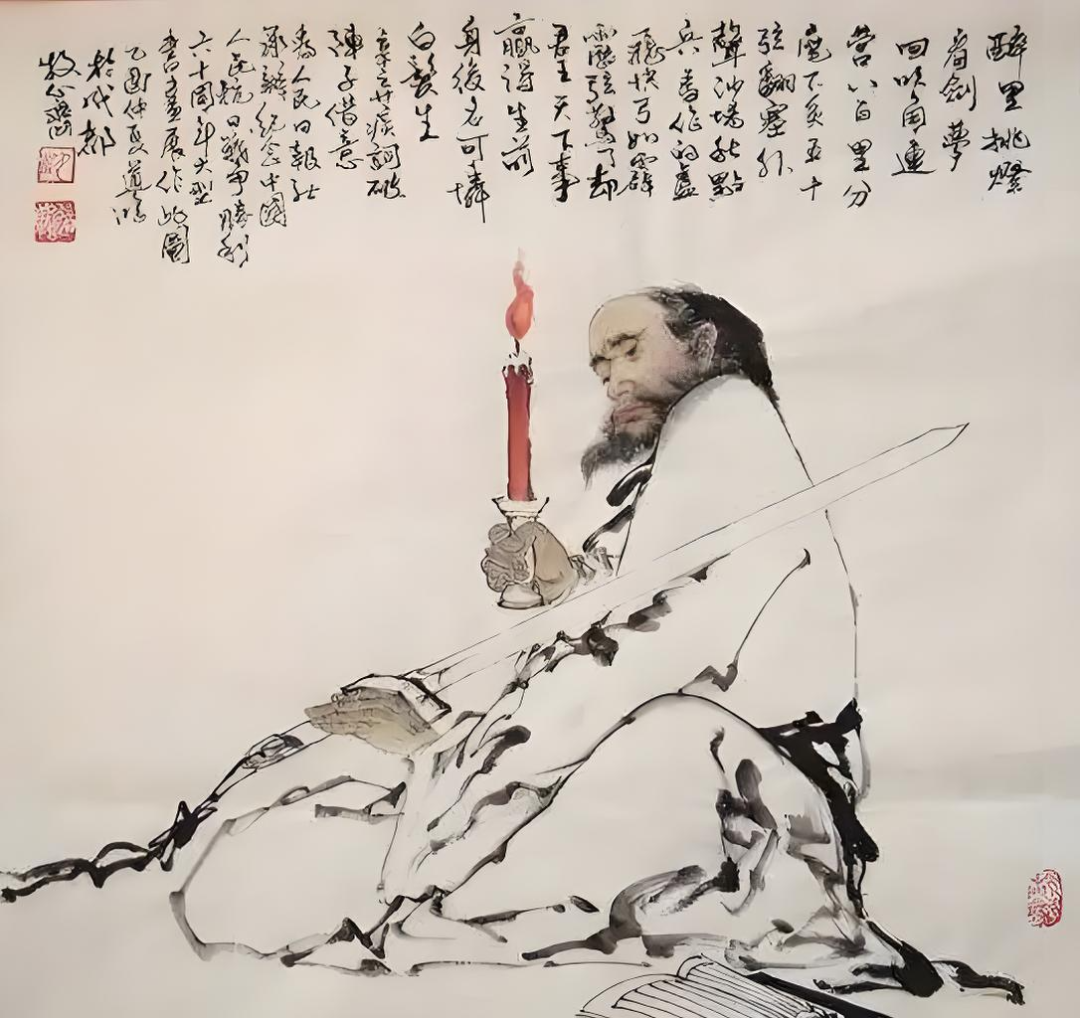 醉里挑燈
看劍夢
回吹角連
营八百里分
麾下炙五十
弦翻塞外
聲沙場秋點
兵馬作的盧
飛快弓如霹
靂弦驚了却
君王天下事
贏得生前
身後名可憐
白髮生
辛弃疾詞破
陣子借意
為人民日報社
承辦紀念中國
人民抗日戰爭勝利
六十周年大型
書畫展作此圖
乙酉仲夏道
於成都
牧心齋